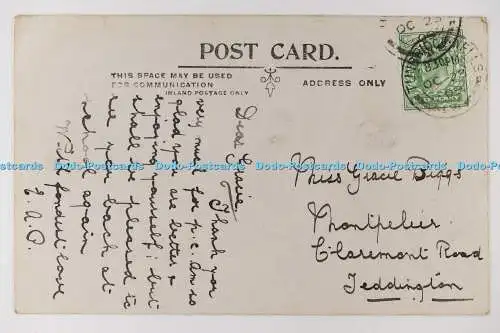 POST CARD.
THIS SPACE MAY BE USED
FOR COMMUNICATION
INLAND POSTAGE ONLY
ADDRESS ONLY
Dear Gracie,
Thank you
very much for p.c. Am so
glad you are better &
enjoying yourself; but
shall be pleased to
see you back at
school again
With fondest love
E. A. P.
Miss Gracie Biggs
Montpelier,
Claremont Road
Teddington
OC 23
Dodo-Postcards Dodo-Postcards Dodo-Postcards Dodo-Postcards